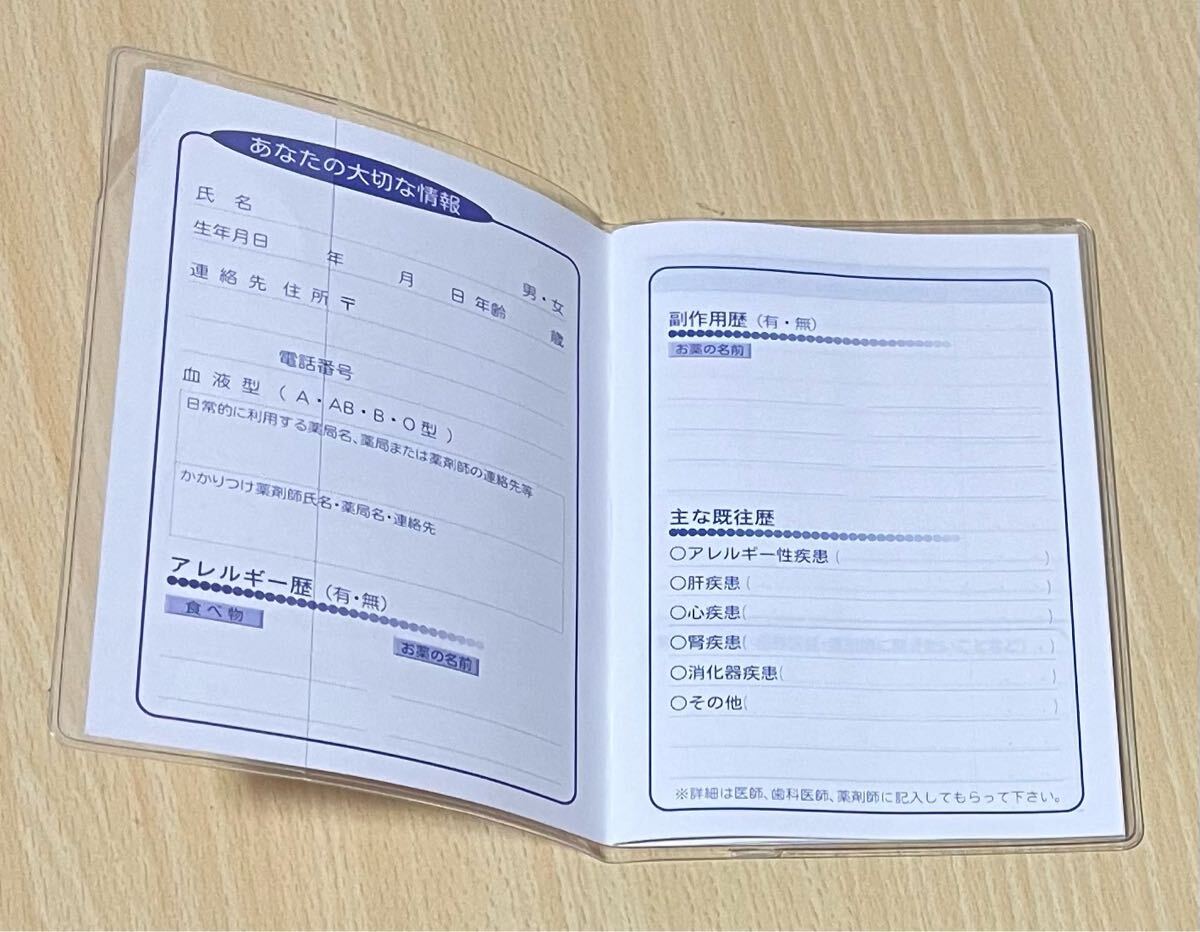 あなたの大切な情報
氏 名 男・女
生年月日 年 月 日 年齢 歳
連 絡 先 住 所 〒
電話番号
血 液 型 ( A・AB・B・O 型 )
日常的に利用する薬局名、薬局または薬剤師の連絡先等
かかりつけ薬剤師氏名・薬局名・連絡先
アレルギー歴 (有・無)
食べ物
お薬の名前
副作用歴 (有・無)
お薬の名前
主な既往歴
○アレルギー性疾患 ( )
○肝疾患 ( )
○心疾患( )
○腎疾患( )
○消化器疾患( )
○その他( )
※詳細は医師、歯科医師、薬剤師に記入してもらって下さい。